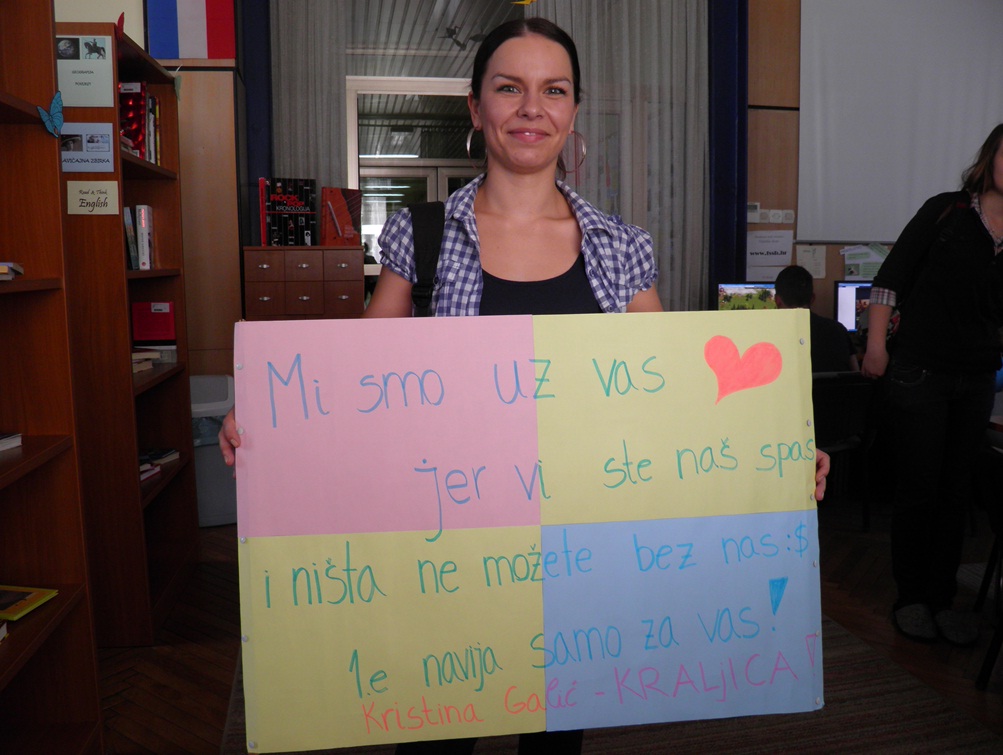 Read & Think
English
ROCK
KRONOLOGIJA
Mi smo uz vas
jer vi ste naš spas
i ništa ne možete bez nas :$
1.e navija samo za vas!
Kristina Galić - KRALjICA!